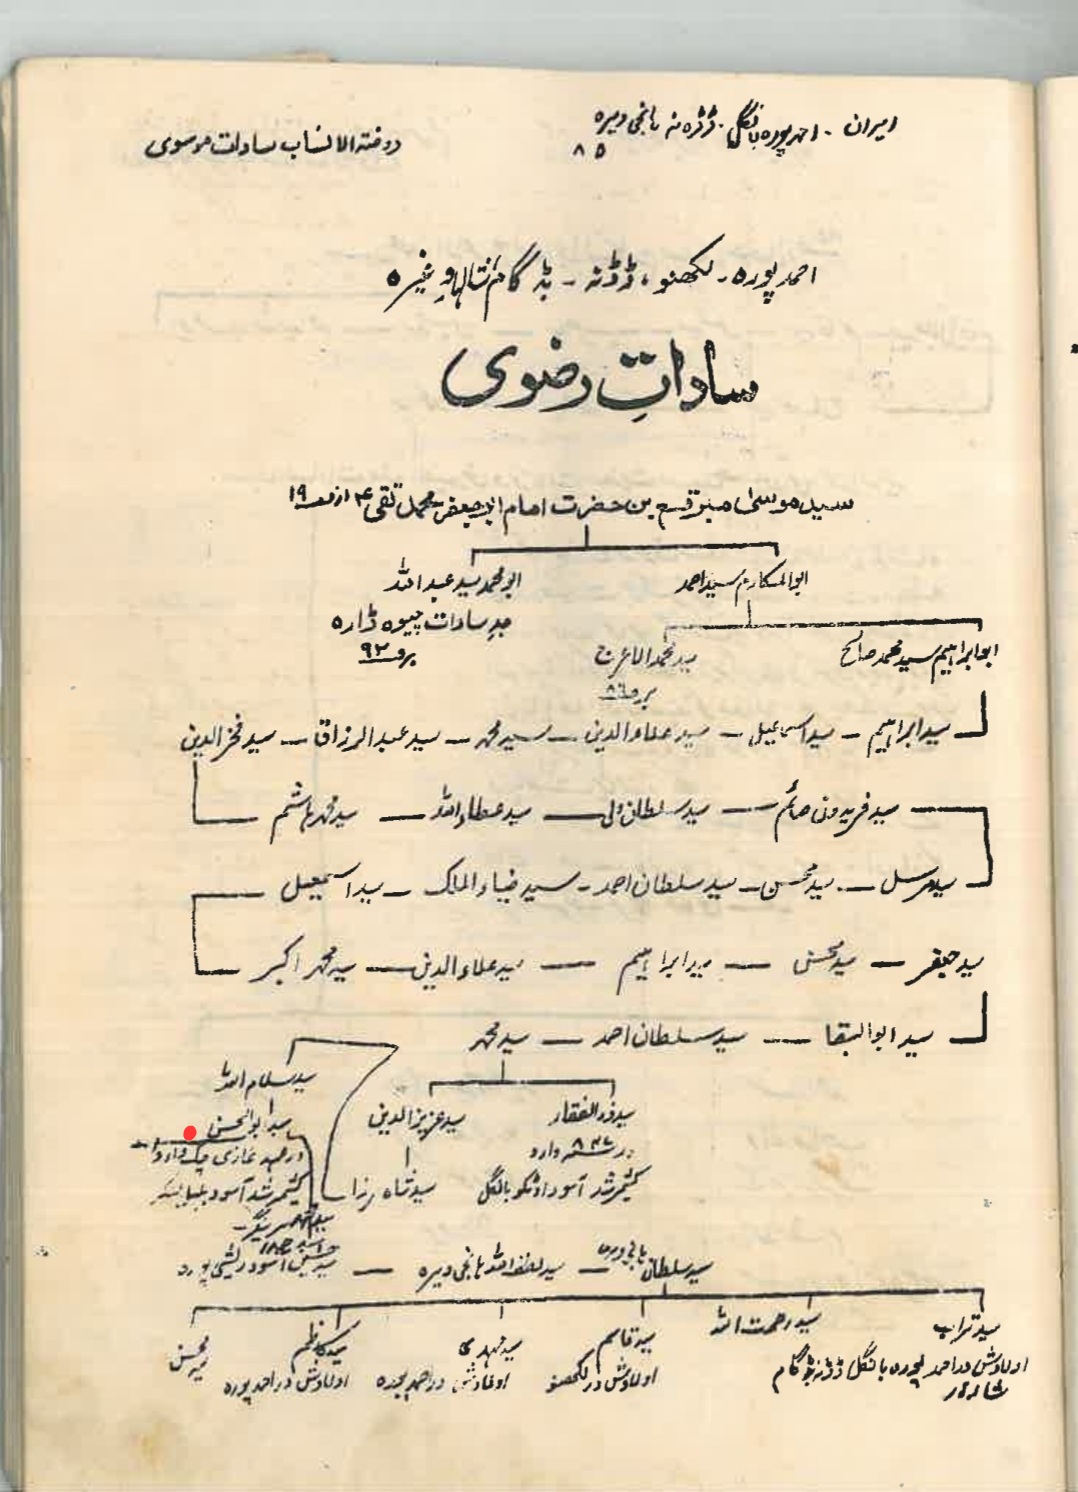 ایران - احمدپورہ بانگل - ڈڈنہ ہانجی ویرہ
۸۵
روضۃ الانساب سادات موسوی
احمدپورہ - لکھنو، ڈڈنہ - بڈگام وغیرہ
ساداتِ رضوی
سید موسیٰ مبرقع بن حضرت امام ابو جعفر محمد تقیؑ از ص ۱۹
ابوالمکارم سید احمد
ابو محمد سید عبداللہ
جدِ سادات چیوہ ڈارہ
برص ۹۲
ابو ابراہیم سید محمد صالح
سید محمد الاعرج
برص ۸٦
سید ابراہیم - سید اسماعیل - سید علاءالدین - سید محمد - سید عبدالرزاق - سید فخرالدین
سید فریدون صائم - سید سلطان ولی - سید عطاءاللہ - سید محمد ہاشم
سید مرسل - سید محسن - سید سلطان احمد - سید ضیاء الملک - سید اسمعیل
سید جعفر - سید محسن - سید ابراہیم - سید علاءالدین - سید محمد اکبر
سید ابوالبقا - سید سلطان احمد - سید محمد
سید ذوالفقار
در ۸۳۴ وارد
کشمیر شد آسودہ بانگل
سید عزیزالدین
سید شاہ رزا
سید سلام اللہ
سید ابوالحسن
در عہد غازی چک وارد
کشمیر شد آسودہ
سید حسین آسودہ پورہ
سید سلطان ہانجی ویرہ - سید لطف اللہ ہانجی ویرہ
سید تراب
اولادش در احمدپورہ بانگل ڈڈنہ بڈگام
سید رحمت اللہ
سید قاسم
اولادش در لکھنو
سید مہدی
اولادش در احمدپورہ
سید کاظم
اولادش در احمدپورہ
سید محسن